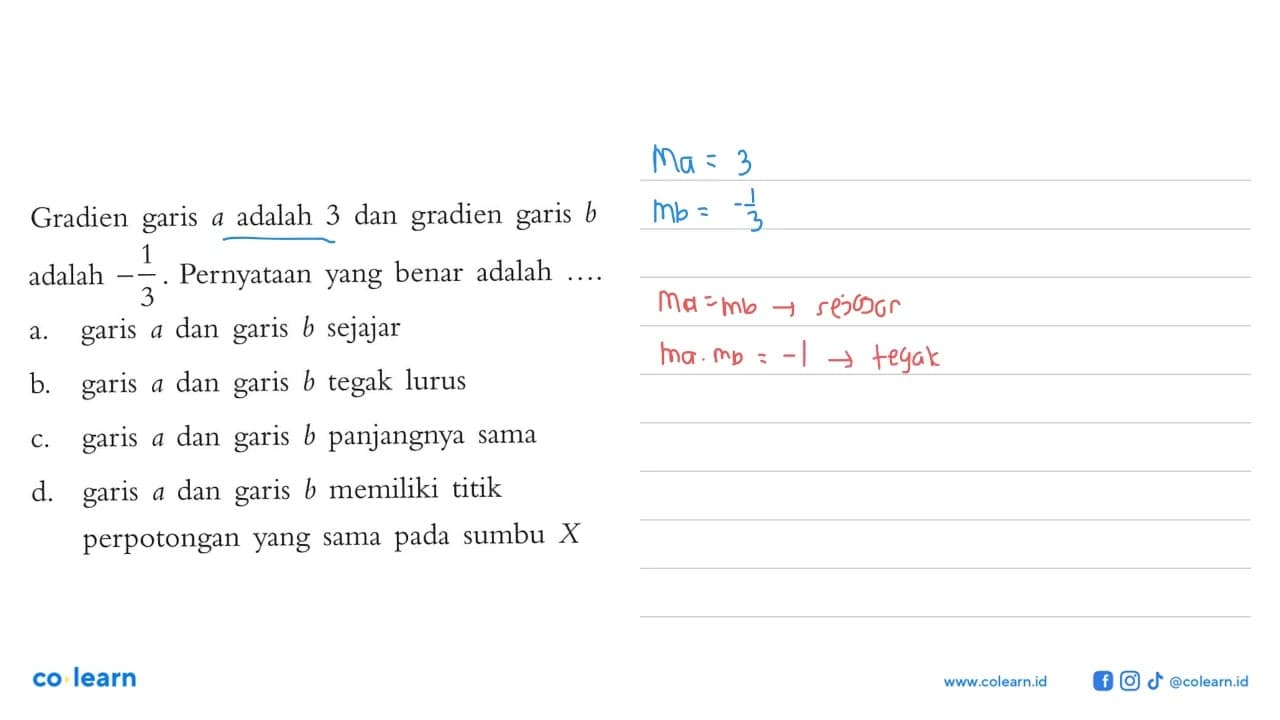 Gradien garis a adalah 3 dan gradien garis b
adalah -1/3. Pernyataan yang benar adalah ....
a. garis a dan garis b sejajar
b. garis a dan garis b tegak lurus
c. garis a dan garis b panjangnya sama
d. garis a dan garis b memiliki titik
perpotongan yang sama pada sumbu X
Ma = 3
mb = -1/3
Ma = mb → sejajar
ma . mb = -1 → tegak
co·learn
www.colearn.id
@colearn.id